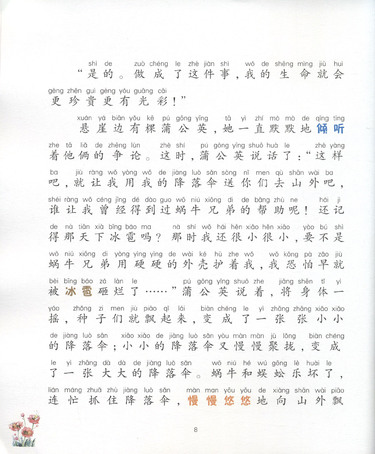 shì de zuò chéng le zhè jiàn shì wǒ de shēng mìng jiù huì
“是的。做成了这件事，我的生命就会
gèng zhēn guì gèng yǒu guāng cǎi
更珍贵更有光彩！”
xuán yá biān yǒu kē pú gōng yīng tā yì zhí mò mò de qīng tīng
悬崖边有棵蒲公英，她一直默默地倾听
zhe tā liǎ de zhēng lùn zhè shí pú gōng yīng shuō huà le zhè yàng
着他俩的争论。这时，蒲公英说话了：“这样
ba jiù ràng wǒ yòng wǒ de jiàng luò sǎn sòng nǐ men qù shān wài ba
吧，就让我用我的降落伞送你们去山外吧，
shéi ràng wǒ céng jīng dé dào guo wō niú xiōng dì de bāng zhù ne hái jì
谁让我曾经得到过蜗牛兄弟的帮助呢！还记
de nà tiān xià bīng báo ma nà shí wǒ hái hěn xiǎo hěn xiǎo yào bú shì
得那天下冰雹吗？那时我还很小很小，要不是
wō niú xiōng dì yòng yìng yìng de wài ké hù zhe wǒ wǒ kǒng pà zǎo jiù
蜗牛兄弟用硬硬的外壳护着我，我恐怕早就
bèi bīng báo zá làn le pú gōng yīng shuō zhe jiāng shēn tǐ yì
被冰雹砸烂了……”蒲公英说着，将身体一
yáo zhǒng zi men jiù piāo qǐ lái biàn chéng le yì zhāng zhāng xiǎo xiǎo
摇，种子们就飘起来，变成了一张张小小
de jiàng luò sǎn xiǎo xiǎo de jiàng luò sǎn yòu màn màn jù lǒng biàn chéng
的降落伞；小小的降落伞又慢慢聚拢，变成
le yì zhāng dà dà de jiàng luò sǎn wō niú hé wú gōng lè huài le
了一张大大的降落伞。蜗牛和蜈蚣乐坏了，
lián máng zhuā zhù jiàng luò sǎn màn màn yōu yōu de xiàng shān wài piāo
连忙抓住降落伞，慢慢悠悠地向山外飘
8